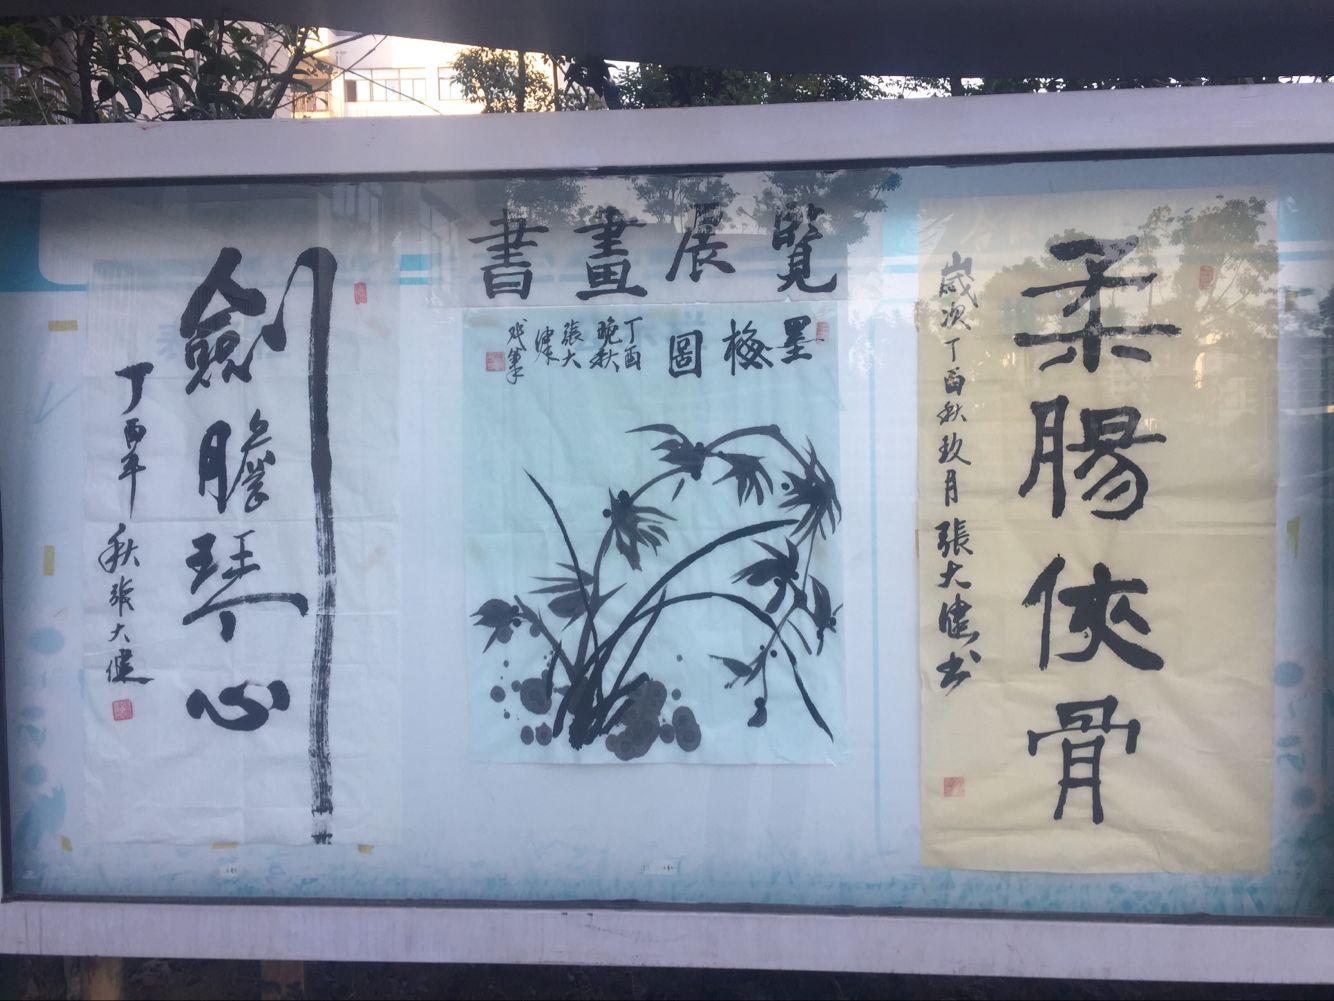 書畫展覽
劍膽琴心
丁酉年秋張大健
墨梅圖
丁酉
晚秋
張大
健
戏筆
柔腸俠骨
歲次丁酉秋玖月張大健书